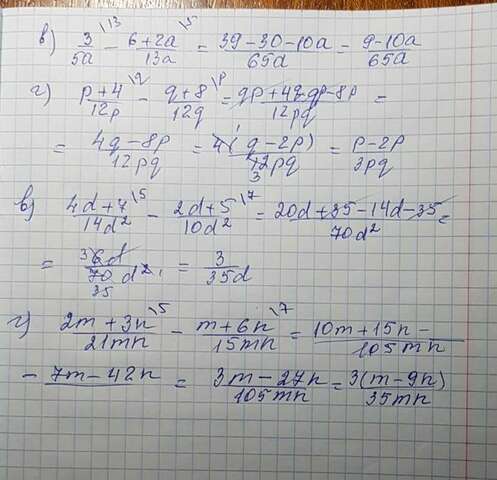 в) 3/5a \13 − 6+2a/13a \5 = 39−30−10a/65a = 9−10a/65a
г) p+4/12p \q − q+8/12q \p = qp+4q−qp−8p/12pq =
= 4q−8p/12pq = 4(q−2p)/12pq = p−2p/3pq
в) 4d+7/14d² \5 − 2d+5/10d² \7 = 20d+35−14d−35/70d² =
= 6d/70d² = 3/35d
г) 2m+3n/21mn \5 − m+6n/15mn \7 = 10m+15n−/105mn
− 7m−42n = 3m−27n/105mn = 3(m−9n)/35mn